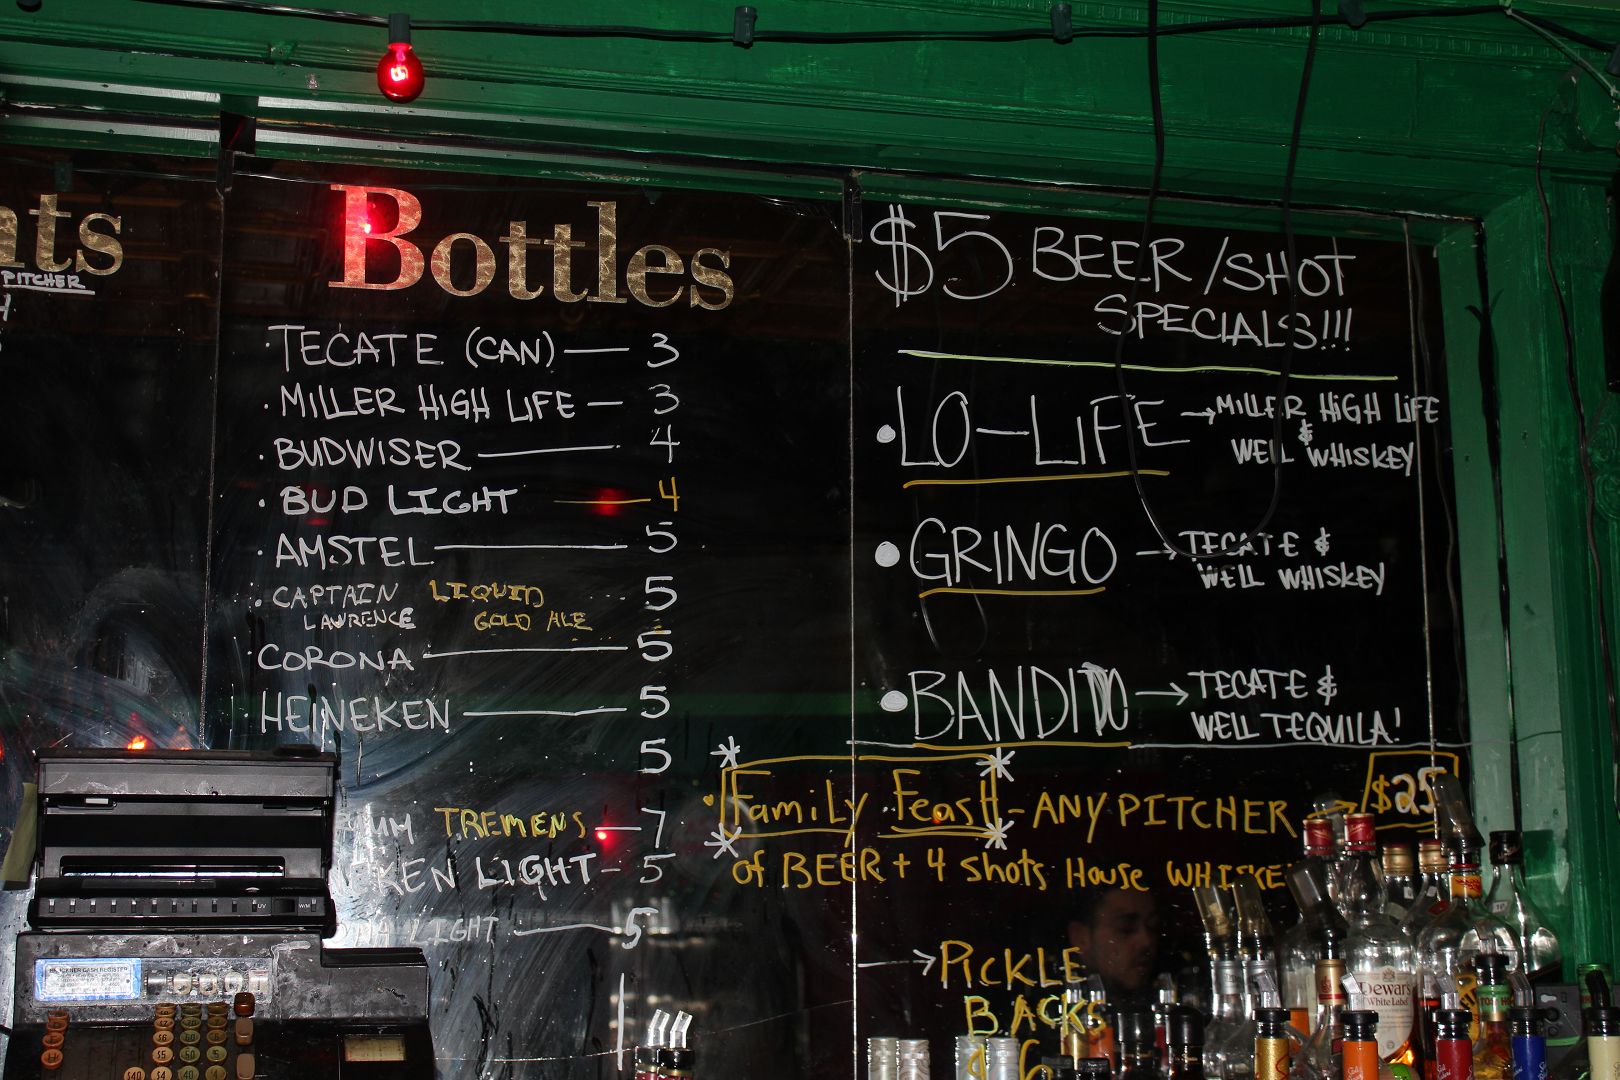 PITCHER
Bottles
TECATE (CAN) — 3
MILLER HIGH LIFE — 3
BUDWISER — 4
BUD LIGHT — 4
AMSTEL — 5
CAPTAIN LIQUID 5
LAWRENCE GOLD ALE
CORONA — 5
HEINEKEN — 5
5
TREMENS — 7
KEN LIGHT - 5
LIGHT — 5
$5 BEER/SHOT
SPECIALS!!!
LO-LIFE → MILLER HIGH LIFE
&
WELL WHISKEY
GRINGO → TECATE &
WELL WHISKEY
BANDITO → TECATE &
WELL TEQUILA!
Family Feast - ANY PITCHER → $25
of BEER + 4 shots House WHISKE
→ PICKLE
BACKS
$6
Dewar's
White Label